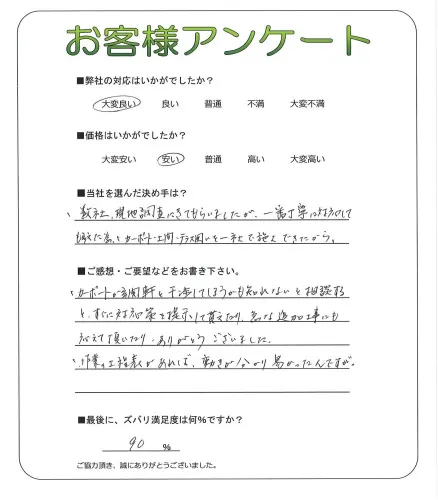 お客様アンケート
■弊社の対応はいかがでしたか?
大変良い 良い 普通 不満 大変不満
■価格はいかがでしたか?
大変安い 安い 普通 高い 大変高い
■当社を選んだ決め手は?
、数社、現地調査にきてもらいましたが、一番丁寧に対応して
、カーポート・土間・テラス囲いを一社で施工できたから。
■ご感想・ご要望などをお書き下さい。
、カーポートが玄関軒と干渉してしまうかも知れないと相談する
と、すぐに対応策を提示して貰えたり、急な追加工事にも
応えて頂いたり、ありがとうございました。
、作業の工程表があれば、動きが分かり易かったんですが。
■最後に、ズバリ満足度は何%ですか?
90 %
ご協力頂き、誠にありがとうございました。